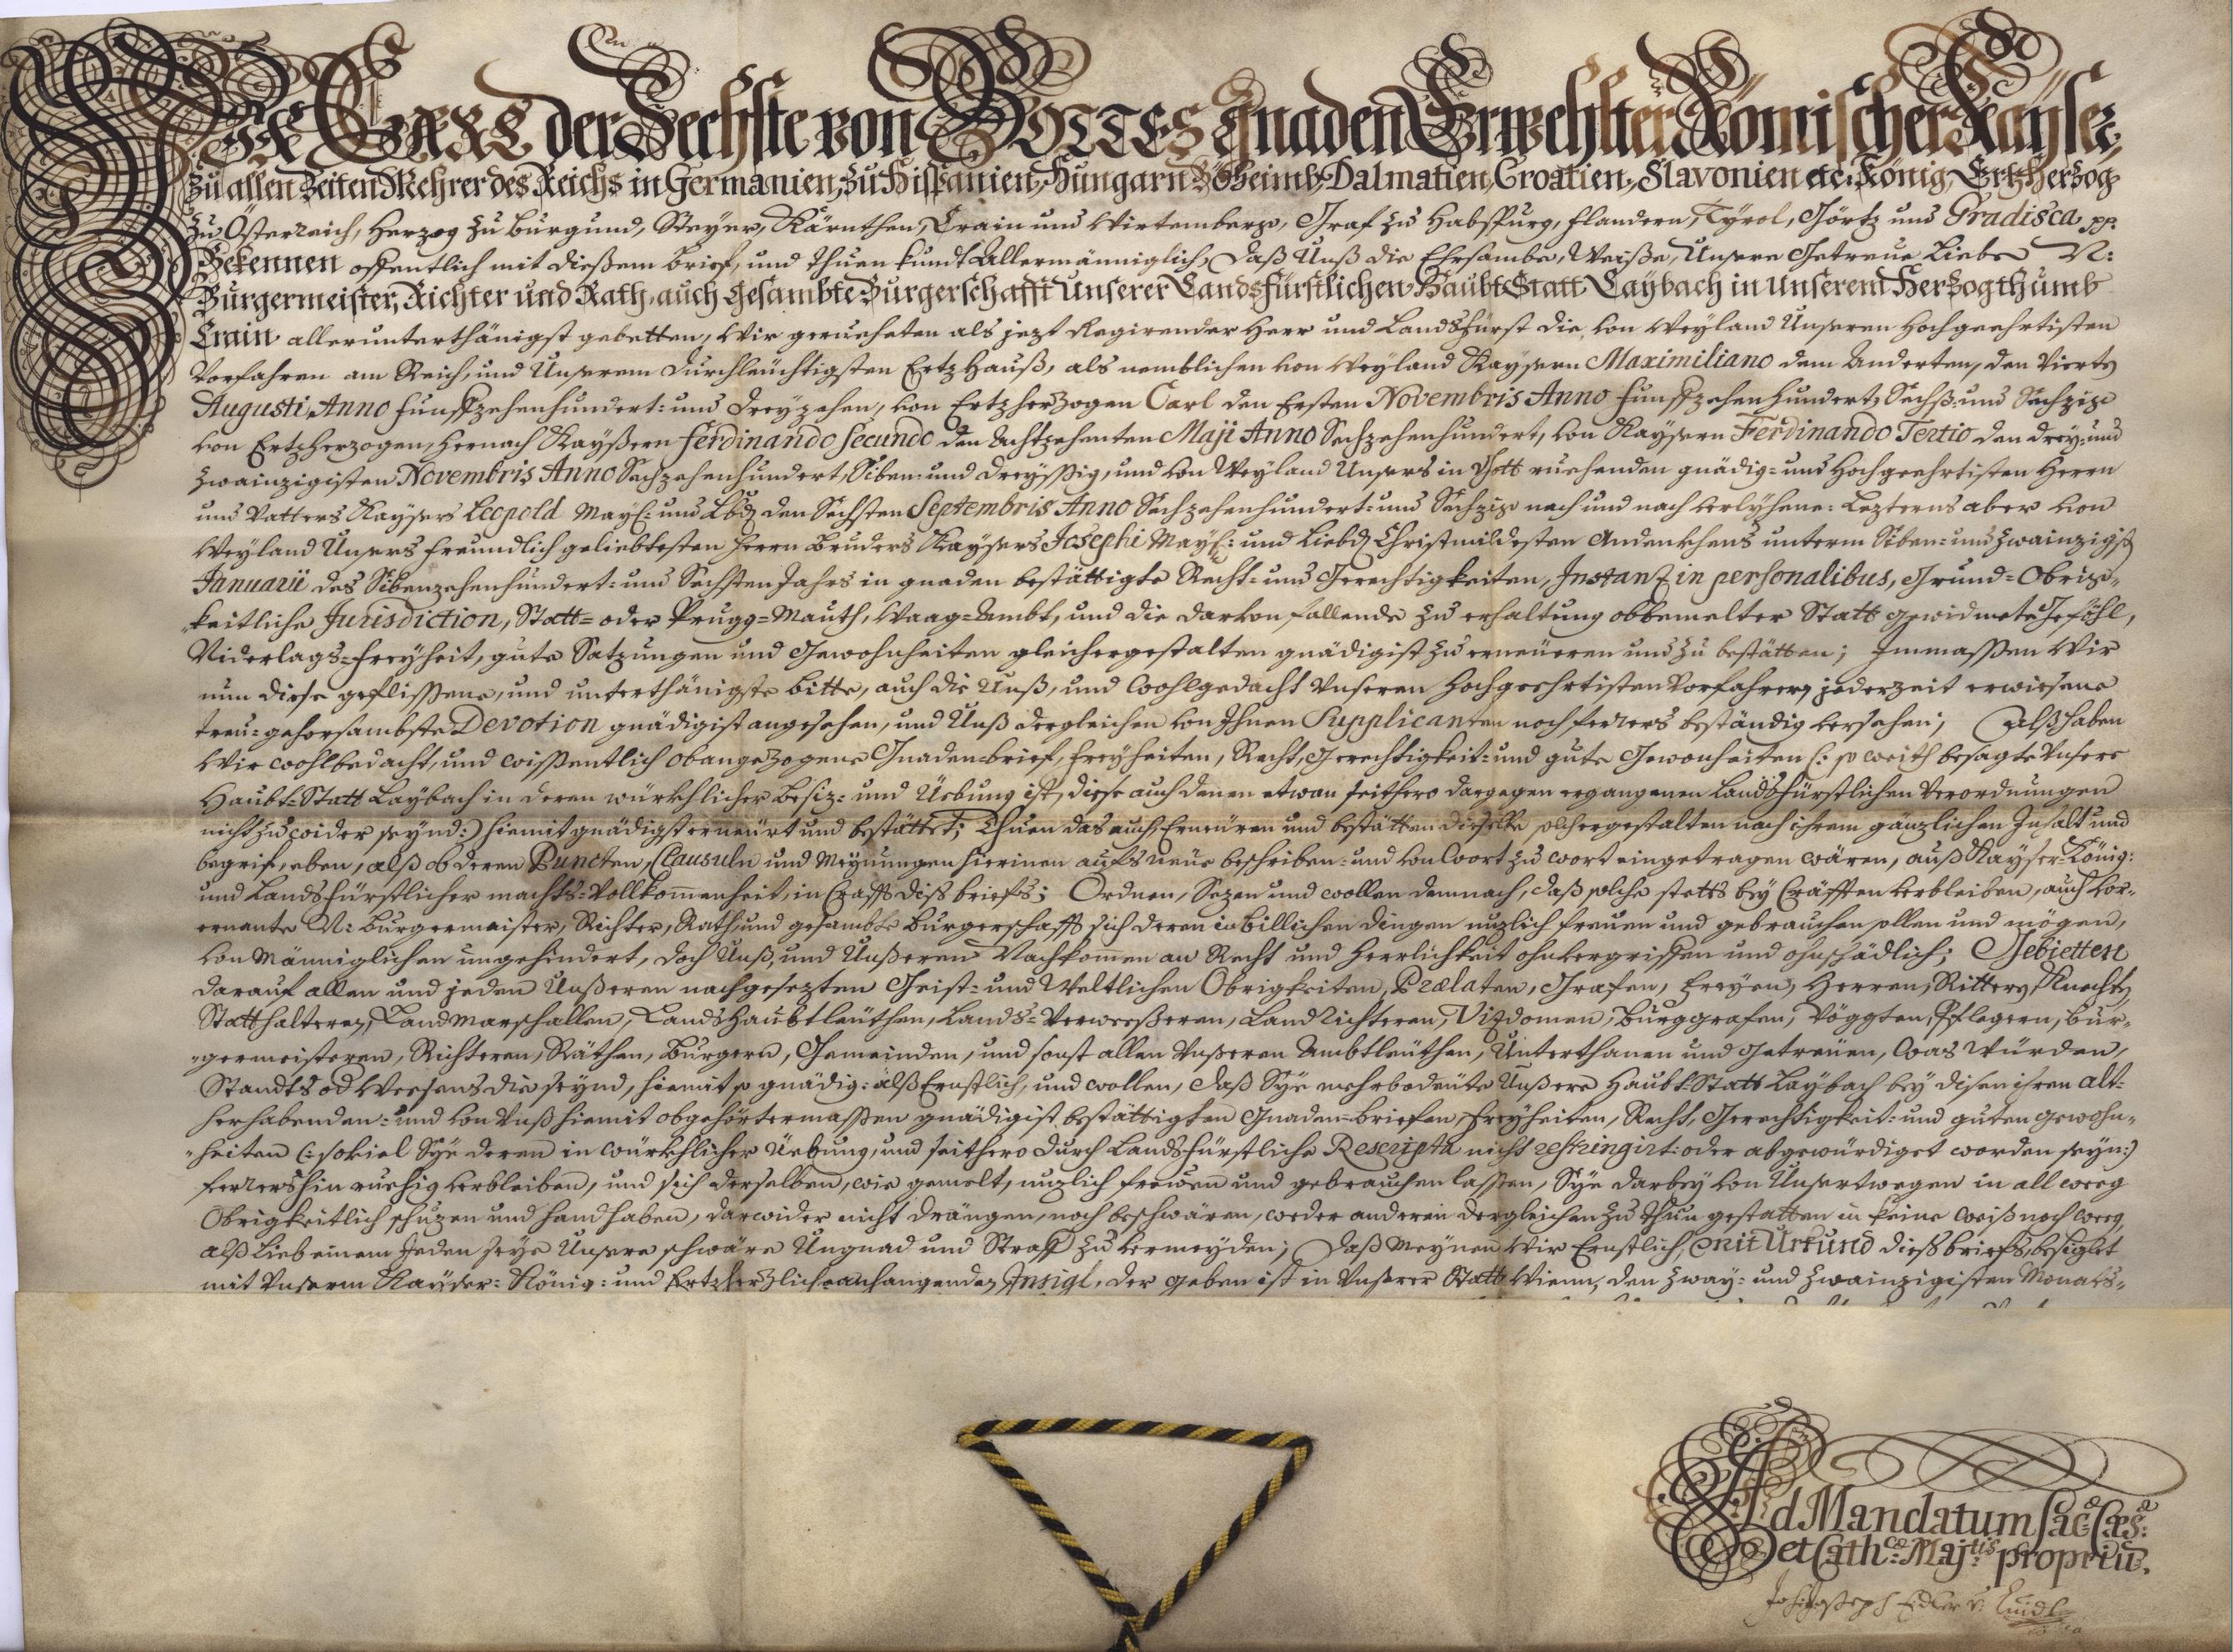 WIR CARL der Sechste von GOTTES Gnaden Erwehlter Römischer Kayser,
zu allen Zeiten Mehrer des Reichs in Germanien, zu Hispanien, Hungarn Böheimb, Dalmatien, Croatien, Slavonien etc: König, Ertzherzog
zu Österreich, Herzog zu Burgund, Steyer, Kärnthen, Crain und Wirtemberg, Graf zu Habspurg, Flandern, Tyrol, Görtz und Gradisca pp:
Bekennen offentlich mit dießem brief, und thuen kundt Allermänniglich, daß Unß die Ehrsambe, Weiße, Unsere Getreue Liebe N:
Burgermeister, Richter und Rath, auch gesambte Burgerschafft Unserer Landsfürstlichen Haubt Statt Laybach in Unserem Herzogthumb
Crain allerunterthänigst gebetten, Wir gerueheten als jezt Regirender Herr und Landsfürst die, von Weyland Unseren Hochgeehrtisten
Vorfahren am Reich, und Unserem durchleuchtigsten Ertzhauß, als nemblichen von Weyland Kaysern Maximiliano dem Anderten, den Vierten
Augusti, Anno funffzehenhundert: und dreyzehen, von Ertzherzogen Carl den Ersten Novembris Anno funffzehenhundert, Sechß: und Sechzig
von Ertzherzogen, hernach Kayßern Ferdinando Secundo den Achtzehenten Maji Anno Sechzehenhundert, von Kaysern Ferdinando Tertio den drey: und
zwainzigisten Novembris Anno Sechzehenhundert, Siben: und dreyssig, und von Weyland Unsers in Gott ruehenden gnädig: und Hochgeehrtisten Herrn
und Vatters Kaysers Leopold May: und Lbd den Sechsten Septembris Anno Sechzehenhundert: und Sechzig nach und nach verlyhene: Lezterns aber von
Weyland Unsers freundlich geliebtesten Herrn Bruders Kaysers Josephi May: und Liebd Christmildesten Andenkhens unterm Siben: und zwainzigst
Januarii des Sibenzehenhundert: und Sechsten Jahrs in gnaden bestättigte Recht: und Gerechtigkeiten, Instanz in personalibus, Grund=Obrig„
„keitliche Jurisdiction, Statt= oder Prugg=Mauth, Waag=Ambt, und die darvon fallende zu erhaltung obbemelter Statt gewidmete Geföhl,
Niderlags=Freyheit, gute Satzungen und Gewohnheiten gleichergestalten gnädigist zu erneueren und zu bestätten; Immassen Wir
nun diese geflissene, und unterthänigste bitte, auch die Unß, und Wohlgedacht Unseren Hochgeehrtisten Vorfahren, jederzeit erwiesene
treu=gehorsambste Devotion gnädigist angesehen, und Unß dergleichen von Ihnen Supplicanten noch ferrers beständig versehen; Alß haben
Wir wohlbedacht, und wissentlich obangezogene Gnadenbrief, Freyheiten, Recht, Gerechtigkeit: und gute Gewonheiten (: so weith besagte Unsere
Haubt=Statt Laybach in deren würkhlicher Besiz: und Üebung ist, diese auch denen etwan seithero dargegen ergangenen Landsfürstlichen Verordnungen
nicht zu wider seynd:) hiemit gnädigst erneurt und bestättet; Thuen das auch, Erneuren und bestätten dieselbe solchergestalten nach ihrem gänzlichen Inhalt und
begrif, eben, alß ob deren Puncten, Clausuln und Meynungen hierinen aufs neue beschriben: und von Wort zu wort eingetragen wären, auß Kayser=König:
und Landsfürstlicher machts=Vollkommenheit, in Crafft diß briefs; Ordnen, Sezen und wollen demnach, daß solche stetts bey Cräfften verbleiben, auch vor„
ernante N: Burgermeister, Richter, Rath, und gesambte Burgerschafft sich deren in billichen dingen nuzlich freuen und gebrauchen sollen und mögen,
von Männiglichen ungehindert, doch Unß, und Unßeren Nachkommen an Recht und Herrlichkeit ohnvergriffen und ohnschädlich; Gebietten
darauf allen und jeden Unßeren nachgesezten Geist= und Weltlichen Obrigkeiten, Prælaten, Grafen, Freyen, Herren, Rittern, Knechten,
Statthalteren, Landmarschallen, Landshaubtleüthen, Lands=Verweeßeren, Landrichteren, Vizdomen, Burggrafen, Vöggten, Pflegern, Bur„
„germeisteren, Richteren, Räthen, Burgern, Gemeinden, und sonst allen Unßeren Ambtleüthen, Unterthanen und Getreüen, Was Würden,
Standts od Weesens die seynd, hiemit so gnädig: alß Ernstlich, und wollen, daß Sye mehrbedeute Unßere Haubt=Statt Laybach bey disen ihren alt=
herhabenden: und von Unß hiemit obgehörtermassen gnädigist bestättigten Gnaden=briefen, Freyheiten, Recht, Gerechtigkeit: und guten Gewohn„
„heiten (: soviel Sye deren in würkhlicher Üebung, und seithero durch Landsfürstliche Rescripta nicht restringirt: oder abgewürdiget worden seyn:)
ferrershin ruehig verbleiben, und sich derselben, wie gemelt, nuzlich freuen und gebrauchen lassen, Sye darbey von Unsertwegen in all weeg
Obrigkeitlich schuzen und handhaben, darwider nicht drängen, noch beschwären, weder anderen dergleichen zu thun gestatten in keine weiß noch weeg,
alß lieb einem Jeden seye Unsere schwäre Ungnad und Straff zu vermeyden; Daß Meynen Wir Ernstlich, Mit Urkund dieß briefs, besiglet
mit Unserm Kayser: König: und Ertzherzlich anhangenden Insigl, der geben ist in Unßerer Statt Wienn, den zway: und zwainzigisten Monats„
Ad Mandatum Sac: Cæs:
et Cath: Majtis proprium.
Joh: Joseph Edler v: